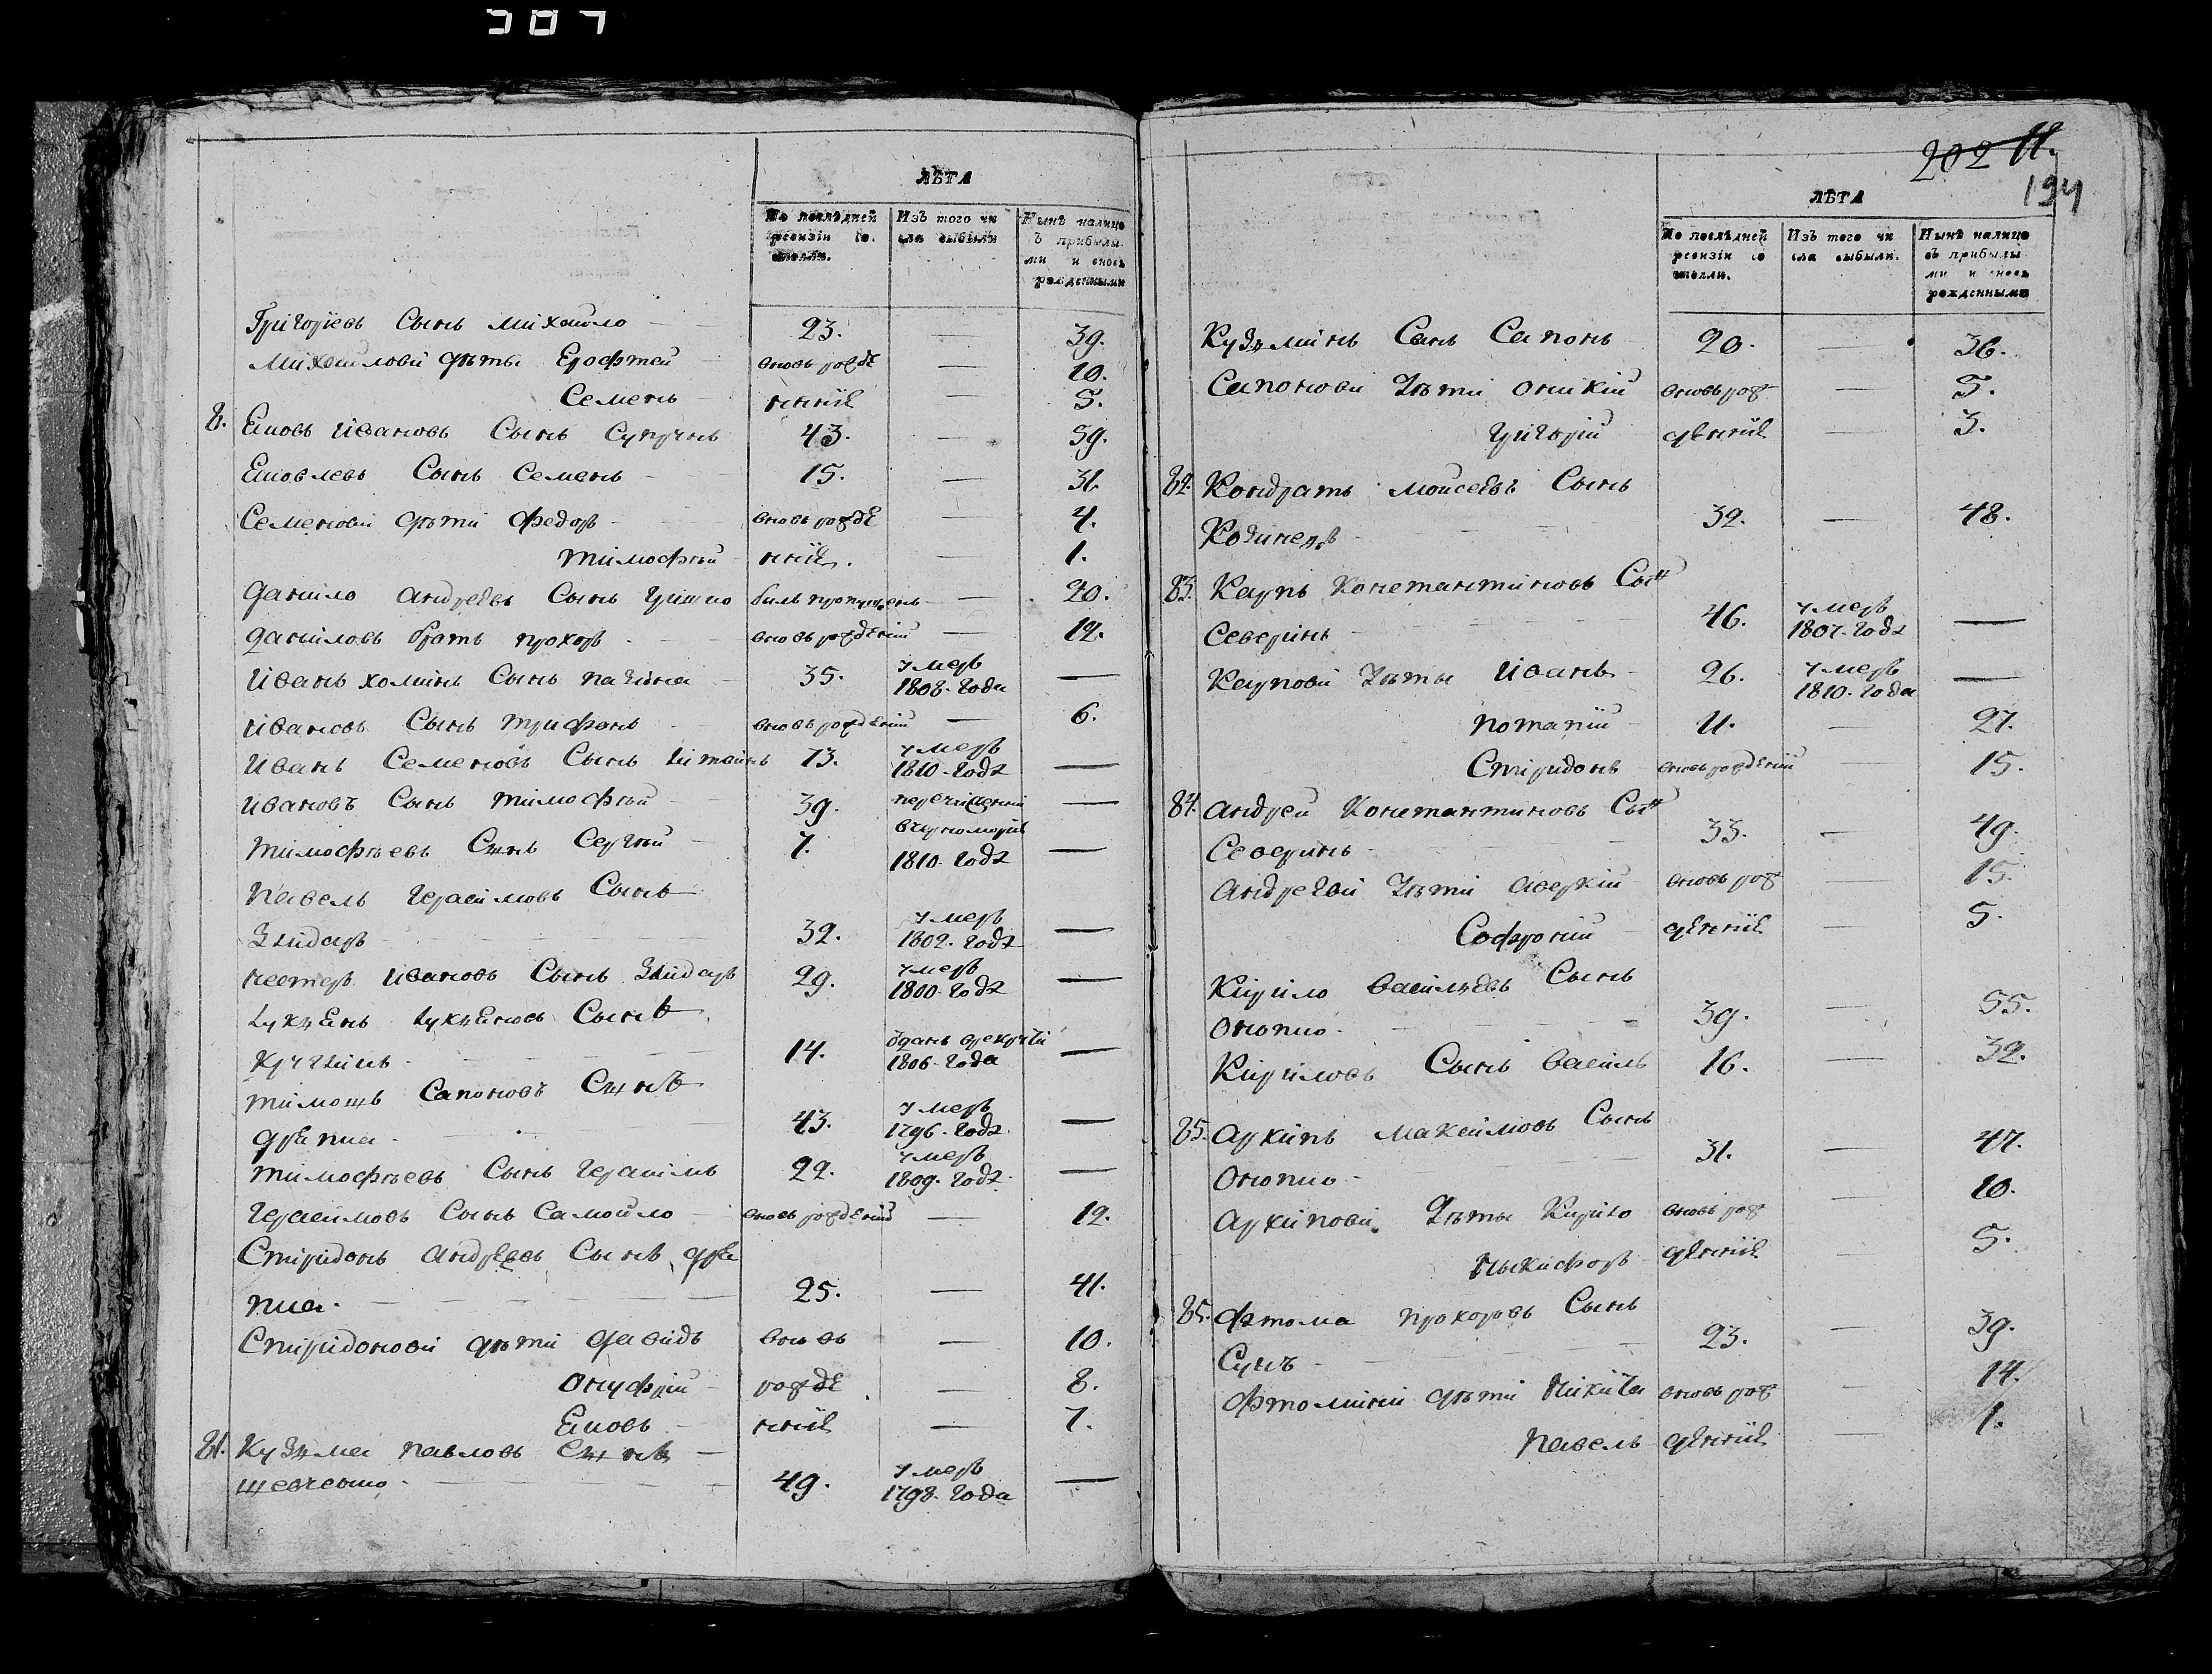 307
ЛѢТА
По послѣдней ревизіи со стояли.
Изъ того чи сла выбыли
Нынѣ налицо съ прибылы ми и вновь рожденными
Григорьевъ Сынъ михайло 23. — 39.
михайлови дѣты Ерофтей вновь рожде — 10.
Семенъ нніе — 5.
8. Еповъ ивановъ Сынъ Супрунъ 43. — 59.
Сынъ Семенъ 15. — 31.
Семенови дѣти федоръ вновь рожде — 4.
тимофѣй нніе. — 1.
данило андреевъ Сынъ былъ пропущенъ — 20.
даниловъ братъ прохоръ вновь рожденій — 12.
иванъ хоминъ Сынъ 35. умеръ 1808. Года —
ивановъ Сынъ трифонъ вновь рожденій — 6.
иванъ Семеновъ Сынъ 73. умеръ 1810. Года —
ивановъ Сынъ тимофѣй 39. —
тимофѣевъ Сынъ Сергѣй 7. 1810. Года —
павелъ Герасимовъ Сынъ
32. умеръ 1802. Года —
нестеръ ивановъ Сынъ 29. умеръ 1800. Года —
Лукянъ Лукяновъ Сынъ
14. 1806. Года —
тимошъ Сапоновъ Сынъ
43. умеръ 1796. Года —
тимофѣевъ Сынъ Герасимъ 22. умеръ 1809. Года —
Герасимовъ Сынъ Самойло вновь рожденій — 12.
Спиридонъ андреевъ Сынъ
25. — 41.
Спиридонови дѣти давидъ вновь — 10.
онуфрій рожде — 8.
Еповъ нніе — 7.
81. Кузьма павловъ Сынъ
49. умеръ 1798. Года —
202 11.
194
ЛѢТА
По послѣдней ревизіи со стояли.
Изъ того чи сла выбыли.
Нынѣ налицо съ прибылы ми и вновь рожденными
Кузьминъ Сынъ Сапонъ 20. — 36.
Сапонови дѣти оникій вновь рож — 5.
григорій денніе — 3.
82. Кондратъ моисеевъ Сынъ
Кодинецъ 32. — 48.
83. Карпъ Константиновъ Сынъ
Северинъ 46. умеръ 1807. Года —
Карпови дѣты иванъ 26. умеръ 1810. Года —
потапій 11. — 27.
Спиридонъ вновь рожденій — 15.
84. андрей Константиновъ Сынъ
Северинъ 33. — 49.
андреевы дѣти аверкій вновь рож — 15.
Софроній денніе — 5.
Кирило васильевъ Сынъ
39. — 55.
Кириловъ Сынъ василь 16. — 32.
85. архипъ максимовъ Сынъ
31. — 47.
архипови дѣты Кирило вновь рож — 10.
ныкифоръ денніе — 5.
85. фтома прохоровъ Сынъ
Сунъ 23. — 39.
фтомини дѣти никита вновь рож — 14.
павелъ денніе — 1.